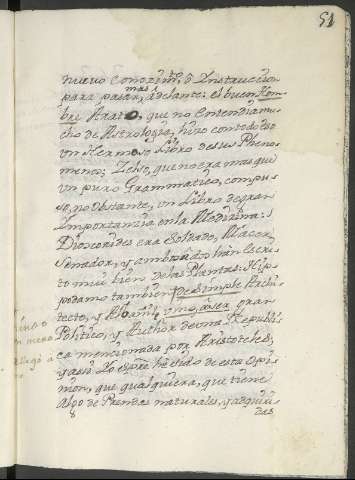 51
nuevo Conozimto, ô Instruccion
para pasar mas adelante: el buen Hom-
bre Arato, que no Entendia mu-
cho de Astrologia, hizo con todo eso
un Hermoso Libro de sus Pheno-
menos; Zelso, que no era mas que
un puro Grammatico, compu-
so, no obstante, un Libro de gran
Importanzia en la Medizina:
Dioscorides era Soldado, Mazer
Senador, y ambos han Escri-
to mui bien de las Plantas: Hip-
podamo tambien de simple Archi-
tecto, y Albañil vino, â ser gran
Politico, y Author de una Republi-
ca mencionada por Aristoteles,
y assi Yo siempre he sido de esta Opi-
nion, que qualquiera, que tiene
Algo de Prendas naturales, y adquiri-
das